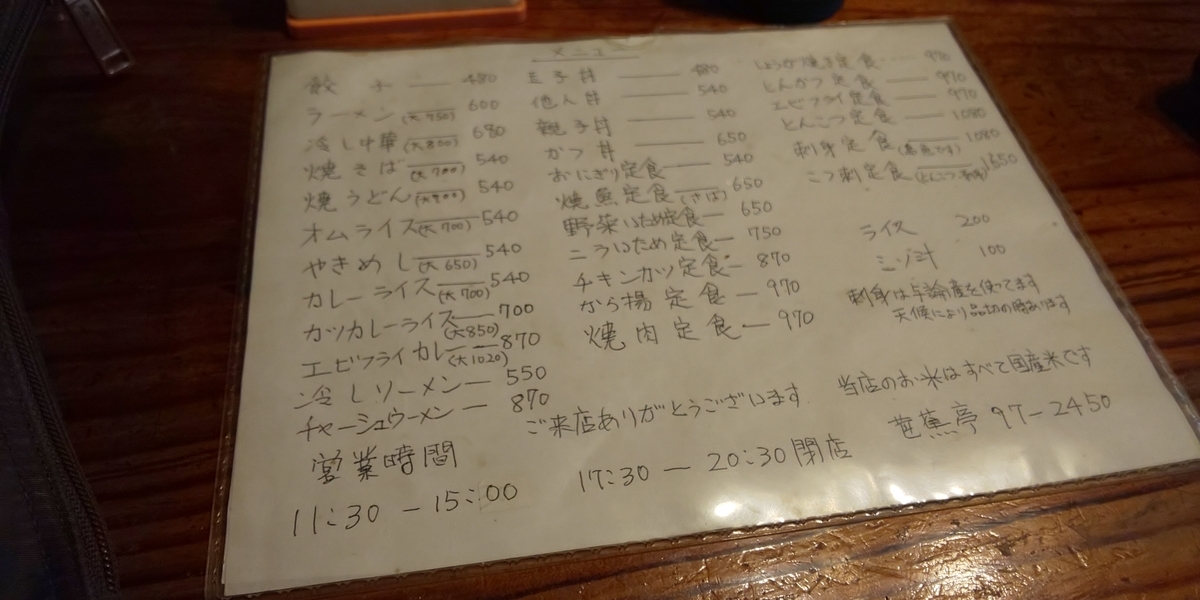 メニュー
餃子 480
ラーメン(大750) 600
冷し中華(大800) 680
焼きそば(大700) 540
焼うどん 540
オムライス(大700) 540
やきめし(大650) 540
カレーライス(大700) 540
カツカレーライス(大850) 700
エビフライカレー(大1020) 870
冷しソーメン 550
チャーシュウーメン 870
営業時間
11:30 - 15:00
玉子丼 480
他人丼 540
親子丼 540
かつ丼 650
おにぎり定食 540
焼魚定食(さば) 650
野菜いため定食 650
ニラいため定食 750
チキンカツ定食 870
から揚定食 970
焼肉定食 970
ご来店ありがとうございます
17:30 - 20:30 閉店
しょうが焼き定食
とんかつ定食 970
エビフライ定食 970
とんこつ定食 1080
刺身定食 1080
こつ刺定食 1650
ライス 200
ミソ汁 100
刺身は与論産を使ってます
天候により品切の時あります
当店のお米はすべて国産米です
芭蕉亭 97-2450